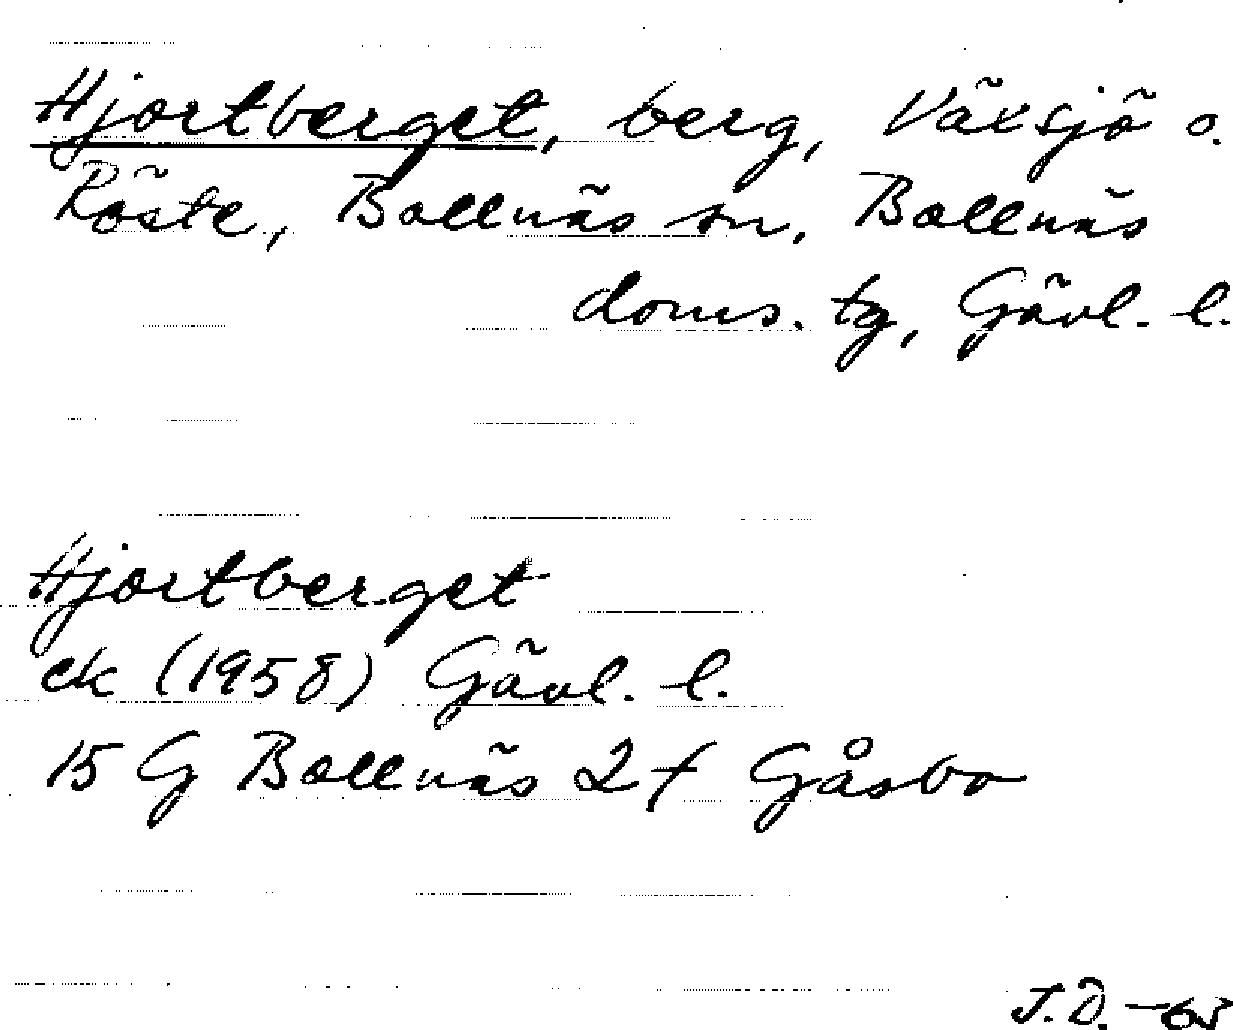 Hjortberget, berg, Växsjö o.
Röste, Bollnäs sn, Bollnäs
doms. tg, Gävl. l.
Hjortberget
ek (1958) Gävl. l.
15 G Bollnäs 2f Gåsbo
J.Ö. -65